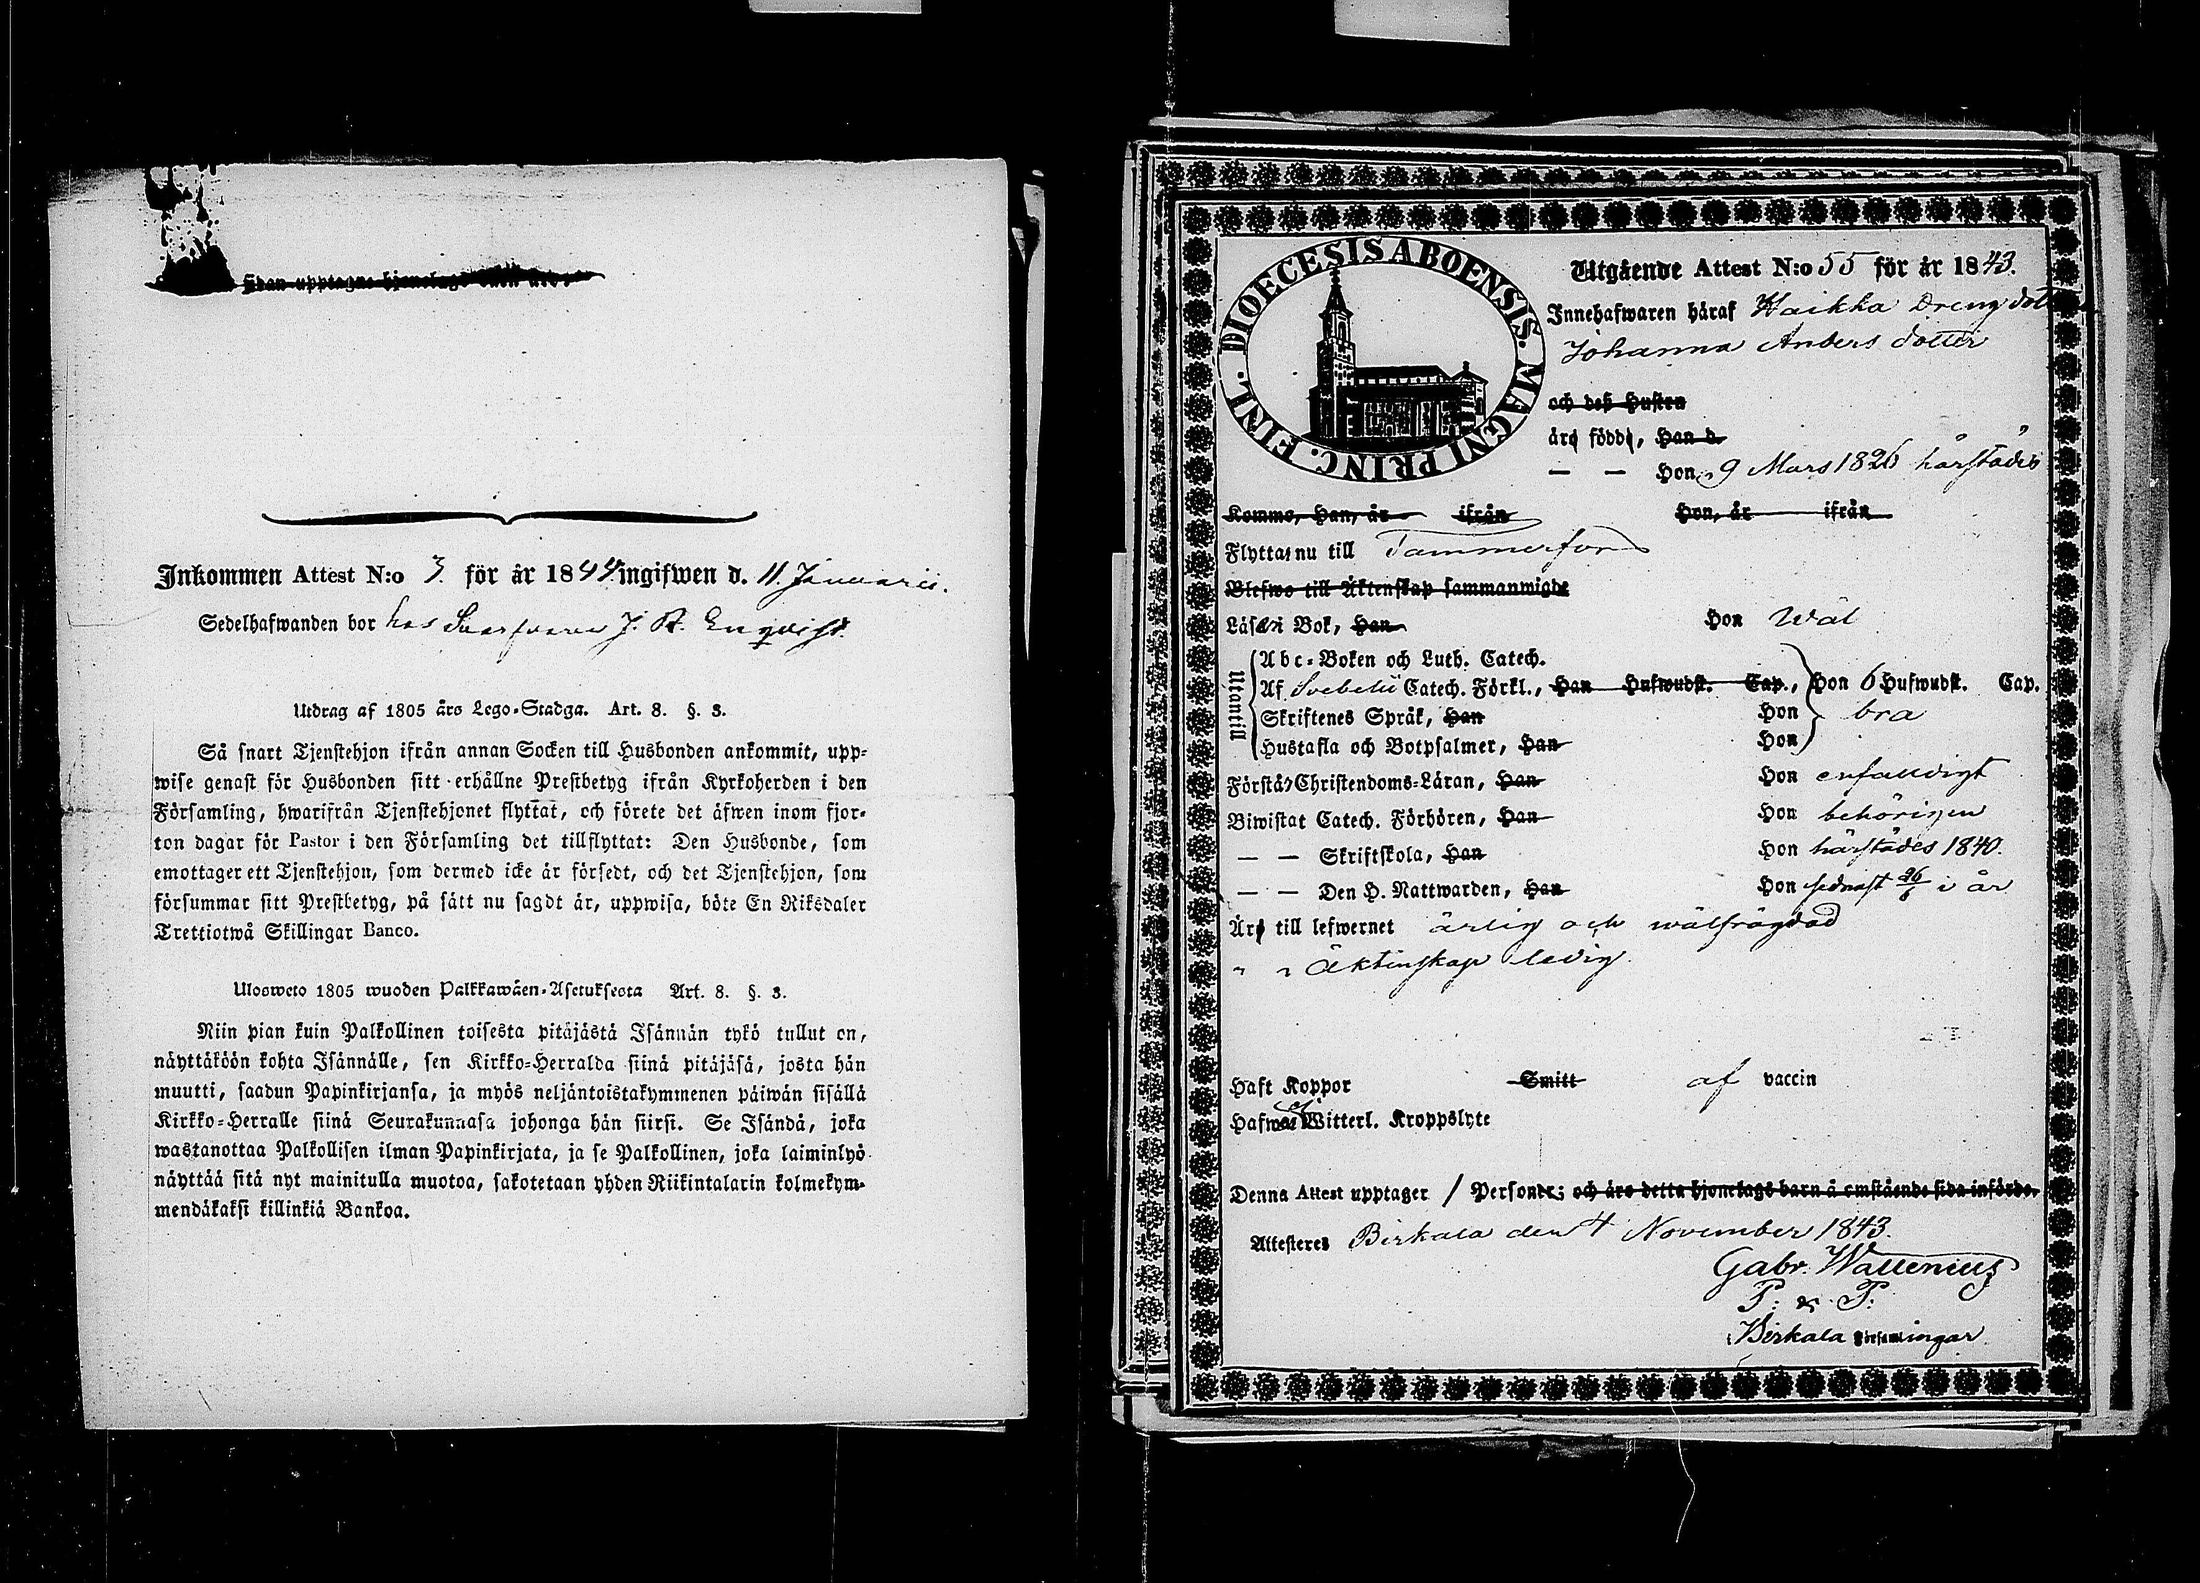 Inkommen Attest N:o 3. för år 1844 ingifwen d. 11. Januarii.
Sedelhafwanden bor hos Swarfvaren J. A. Enqvist.
Utdrag af 1805 års Lego-Stadga. Art. 8. §. 3.
Så snart Tjenstehjon ifrån annan Socken till Husbonden ankommit, upp-
wise genast för Husbonden sitt erhållne Prestbetyg ifrån Kyrkoherden i den
Församling, hwarifrån Tjenstehjonet flyttat, och förete det äfwen inom fjor-
ton dagar för Pastor i den Församling det tillflyttat: Den Husbonde, som
emottager ett Tjenstehjon, som dermed icke är försedt, och det Tjenstehjon, som
försummar sitt Prestbetyg, på sätt nu sagdt är, uppwisa, böte En Riksdaler
Trettiotwå Skillingar Banco.
Ulosweto 1805 wuoden Palkkawäen-Asetuksesta Art. 8. §. 3.
Niin pian kuin Palkollinen toisesta pitäjästä Isännän tykö tullut on,
näyttäköön kohta Isännälle, sen Kirkko-Herralda siinä pitäjäsä, josta hän
muutti, saadun Papinkirjansa, ja myös neljäntoistakymmenen päiwän sisällä
Kirkko-Herralle siinä Seurakunnasa johonga hän siirsi. Se Isändä, joka
wastanottaa Palkollisen ilman Papinkirjata, ja se Palkollinen, joka laiminlyö
näyttää sitä nyt mainitulla muotoa, sakotetaan yhden Riikintalarin kolmekym-
mendäkaksi killinkiä Bankoa.
DIOECESIS ABOENSIS. MAGNI PRINC. FINL.
Utgående Attest N:o 55 för år 1843.
Innehafwaren häraf Haikka Dreng dott
Johanna Anders dotter
och deß Hustru
äro födde, Han d.
— — Hon 9 Mars 1826 härstädes
Komme, Han, år ifrån Hon, år ifrån
Flyttar nu till Tammerfors
Blefwo till Äktenskap sammanwigde
Läser i Bok, Han Hon Wäl
Utantill
Abc-Boken och Luth. Catech.
Af Svebelii Catech. Förkl., Han Hufwudst. Cap., Hon 6 Hufwudst. Cap.
Skriftenes Språk, Han Hon bra
Hustafla och Botpsalmer, Han Hon
Förstår Christendoms-Läran, Han Hon enfaldigt
Biwistat Catech. Förhören, Han Hon behörigen
— — Skriftskola, Han Hon härstädes 1840.
— — Den H. Nattwarden, Han Hon sednast 26/ i år
Äro till lefwernet ärlig och wälfrägdad
" " Äktenskap ledig.
Haft Koppor Smitt af vaccin
Hafwer ej Witterl. Kroppslyte
Denna Attest upptager 1 Personer; och äro detta hjonelags barn å omstående sida införde.
Attesteres Birkala den 4 November 1843.
Gabr. Wallenius
P: & P:
Birkala Församlingar